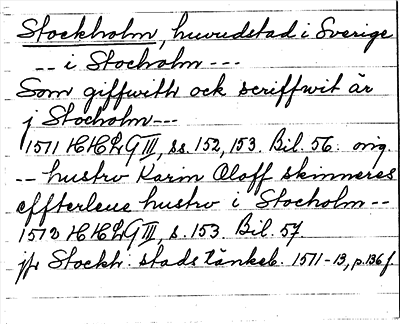 Stockholm, huvudstad i Sverige
-- i Stocholm ---
Som giffwith ock scriffwit är
j Stocholm ---
1511 HHLG III, ss. 152, 153. Bil. 56. orig.
-- hustrv Karin Oloff skinneres
effterleue hustrv i Stocholm --
1512 HHLG III, s. 153. Bil. 57.
jfr Stockh. stads tänkeb. 1511-13, p. 136 f.